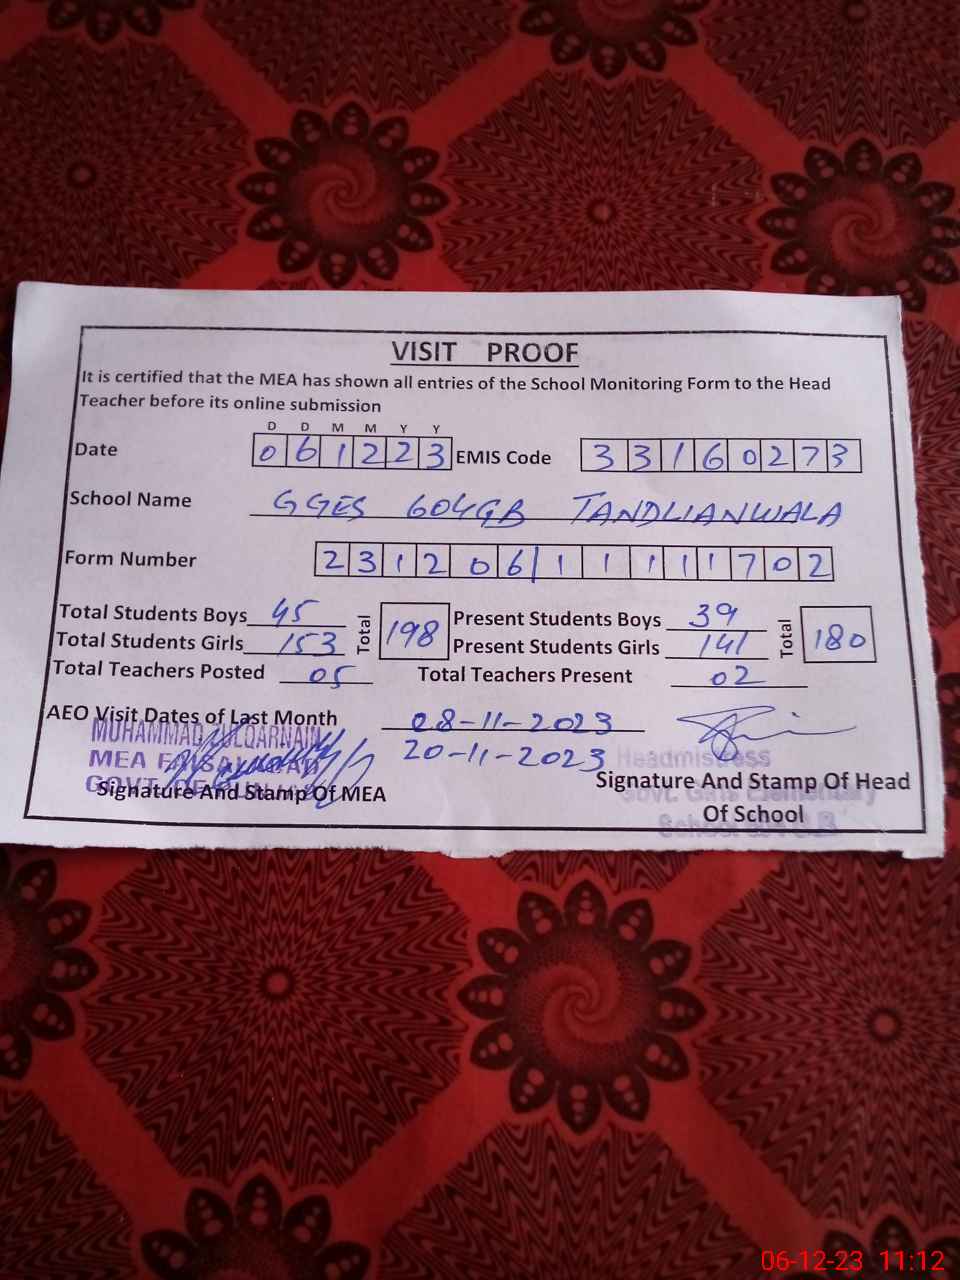 VISIT PROOF
It is certified that the MEA has shown all entries of the School Monitoring Form to the Head
Teacher before its online submission
D D M M Y Y
Date 061223 EMIS Code 33160273
School Name GGES 604GB TANDLIANWALA
Form Number 231206111111702
Total Students Boys 45 Total 198 Present Students Boys 39 Total 180
Total Students Girls 153 Present Students Girls 141
Total Teachers Posted 05 Total Teachers Present 02
AEO Visit Dates of Last Month 08-11-2023
20-11-2023
MUHAMMAD ZULQARNAIN
MEA FAISALABAD
GOVT. OF PUNJAB
Signature And Stamp Of MEA
Headmistress
Govt. Girls Elementary
School
Signature And Stamp Of Head
Of School
06-12-23 11:12